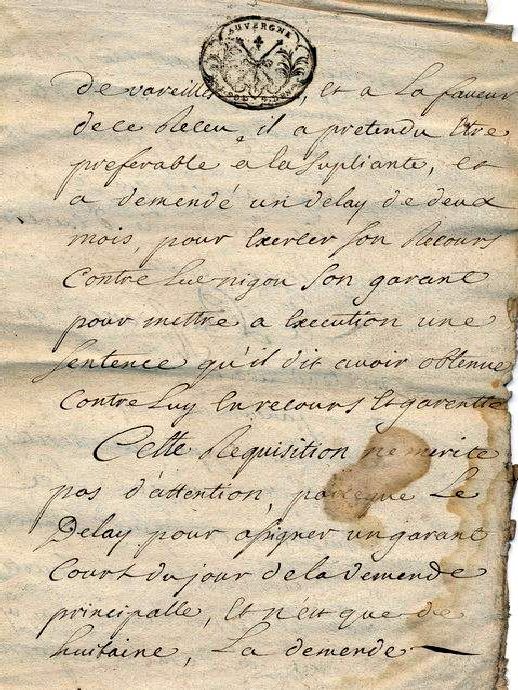 AUVERGNE
De vareille , et a La faveur
de ce Receu, il a pretendu Etre
preferable a la supliante, et
a demendé un delay de deux
mois, pour Exercer son Recours
Contre Luc nigou son garant
pour mettre a Execution une
sentence qu'il dit avoir obtenue
contre Luy En recours Et garentie
Cette Requisition ne merite
pas d'attention, parceque Le
Delay pour assigner un garant
Court du jour de la demende
principalle, Et n'est que de
huitaine, La demende